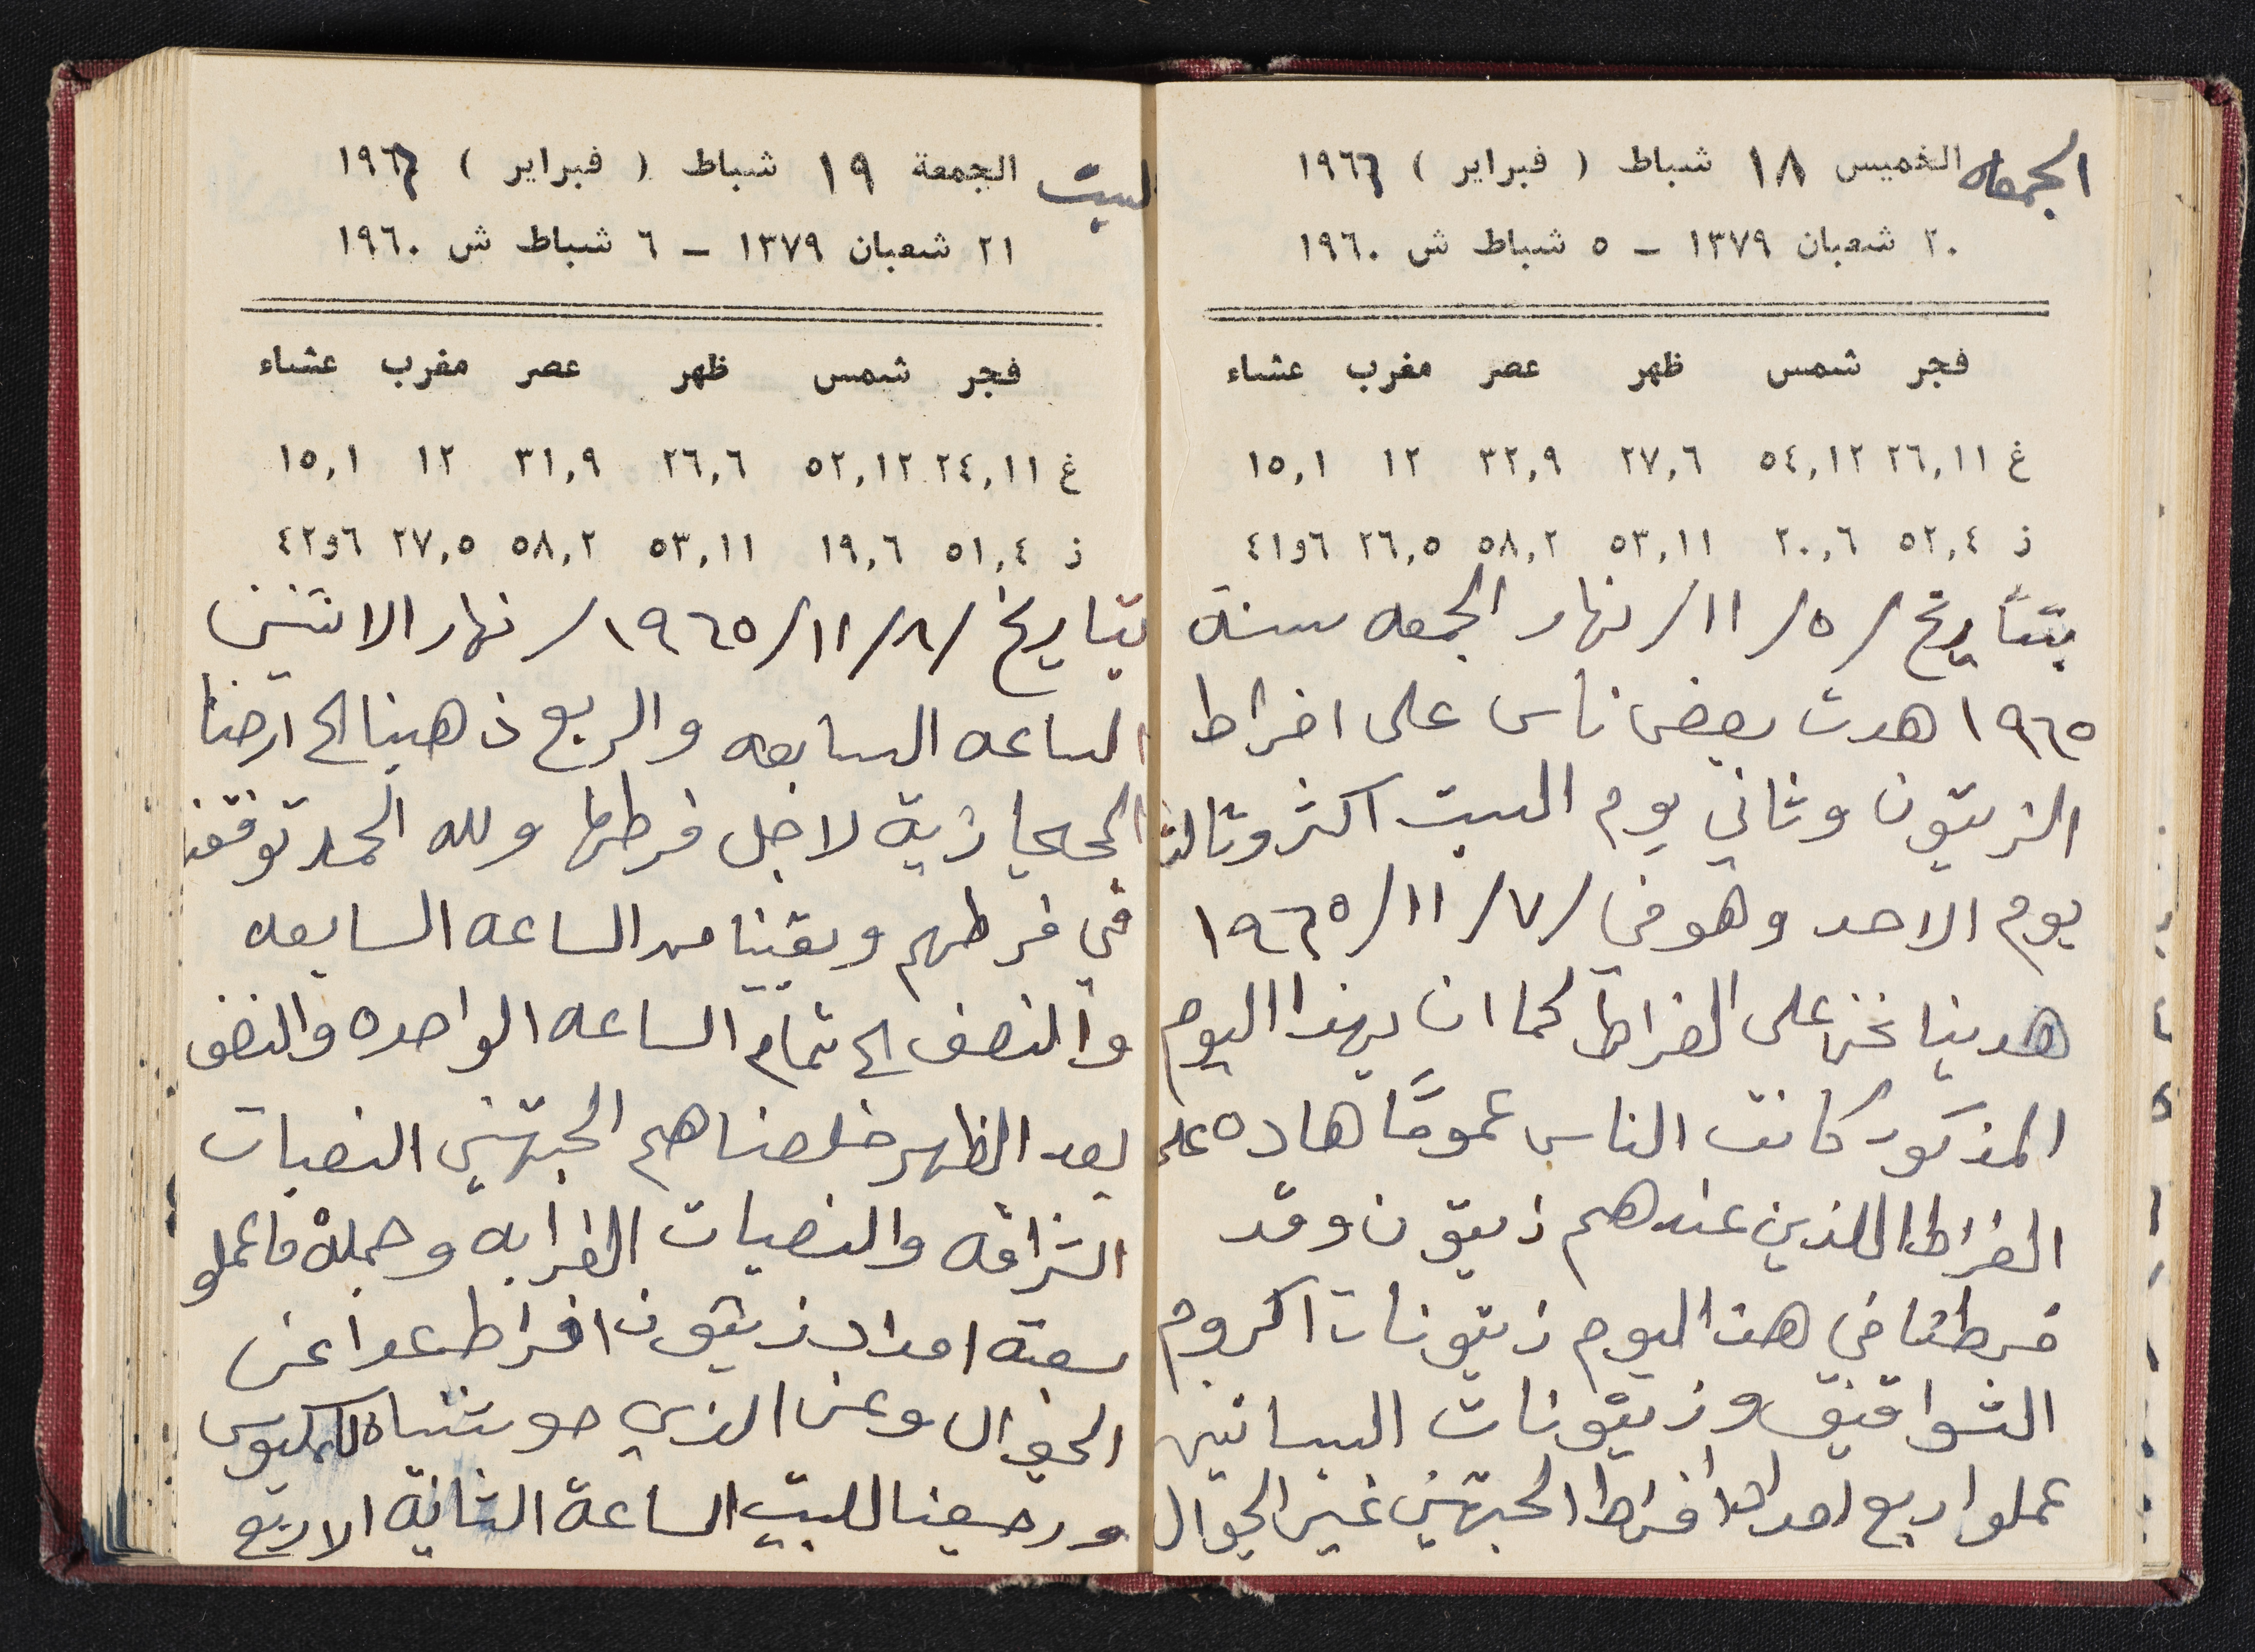 الجمعه الخميس ١٨ شباط ( فبراير ) ١٩٦٦
٢٠ شعبان ١٣٧٩ - ٥ شباط ش ١٩٦٠
فجر شمس ظهر عصر مغرب عشاء
غ ٢٦,١١ ٥٤,١٢ ٢٧,٦ ٣٢,٩ ١٢ ١٥,١
ز ٥٢,٤ ٢٠,٦ ٥٣,١١ ٥٨,٢ ٢٦,٥ ٦و٤١
بتاريخ /٥/١١/ نهار الجمعه سنة
١٩٦٥ هدت بعض ناس على افراط
الزيتون وثاني يوم السبت اكثر وثالث
يوم الاحد وهو في /٧/١١/١٩٦٥
هدينا نحن على الفراط كما ان بهذا اليوم
المذكور كانت الناس عمومًا هاده على
الفراط اللذين عندهم زيتون وقد
فرطنا في هذا اليوم زيتونات اكروم
الشواقيق وزيتونات البساتين
عملوا اربع امداد افراط الجبتهين غير الجوال
السبت الجمعة ١٩ شباط ( فبراير ) ١٩٦٦
٢١ شعبان ١٣٧٩ - ٦ شباط ش ١٩٦٠
فجر شمس ظهر عصر مغرب عشاء
غ ٢٤,١١ ٥٢,١٢ ٢٦,٦ ٣١,٩ ١٢ ١٥,١
ز ٥١,٤ ١٩,٦ ٥٣,١١ ٥٨,٢ ٢٧,٥ ٦و٤٢
بتاريخ /٨/١١/١٩٦٥/ نهار الاثنين
الساعه السابعه والربع ذهبنا الى ارضنا
الحجازية لاجل فرطها ولله الحمد توفقنا
في فرطهم وبقينا من الساعه السابعه
والنصف الى تمام الساعه الواحده والنصف
بعد الظهر خلصناهم الجبتهين النصبات
الشراقه والنصبات الغرابه وجملة ما عملو
سبعة امداد زيتون افراط عدا عن
الجوال وعن الذي حوشناه
ورجعنا للبيت الساعة الثانية الا ربع